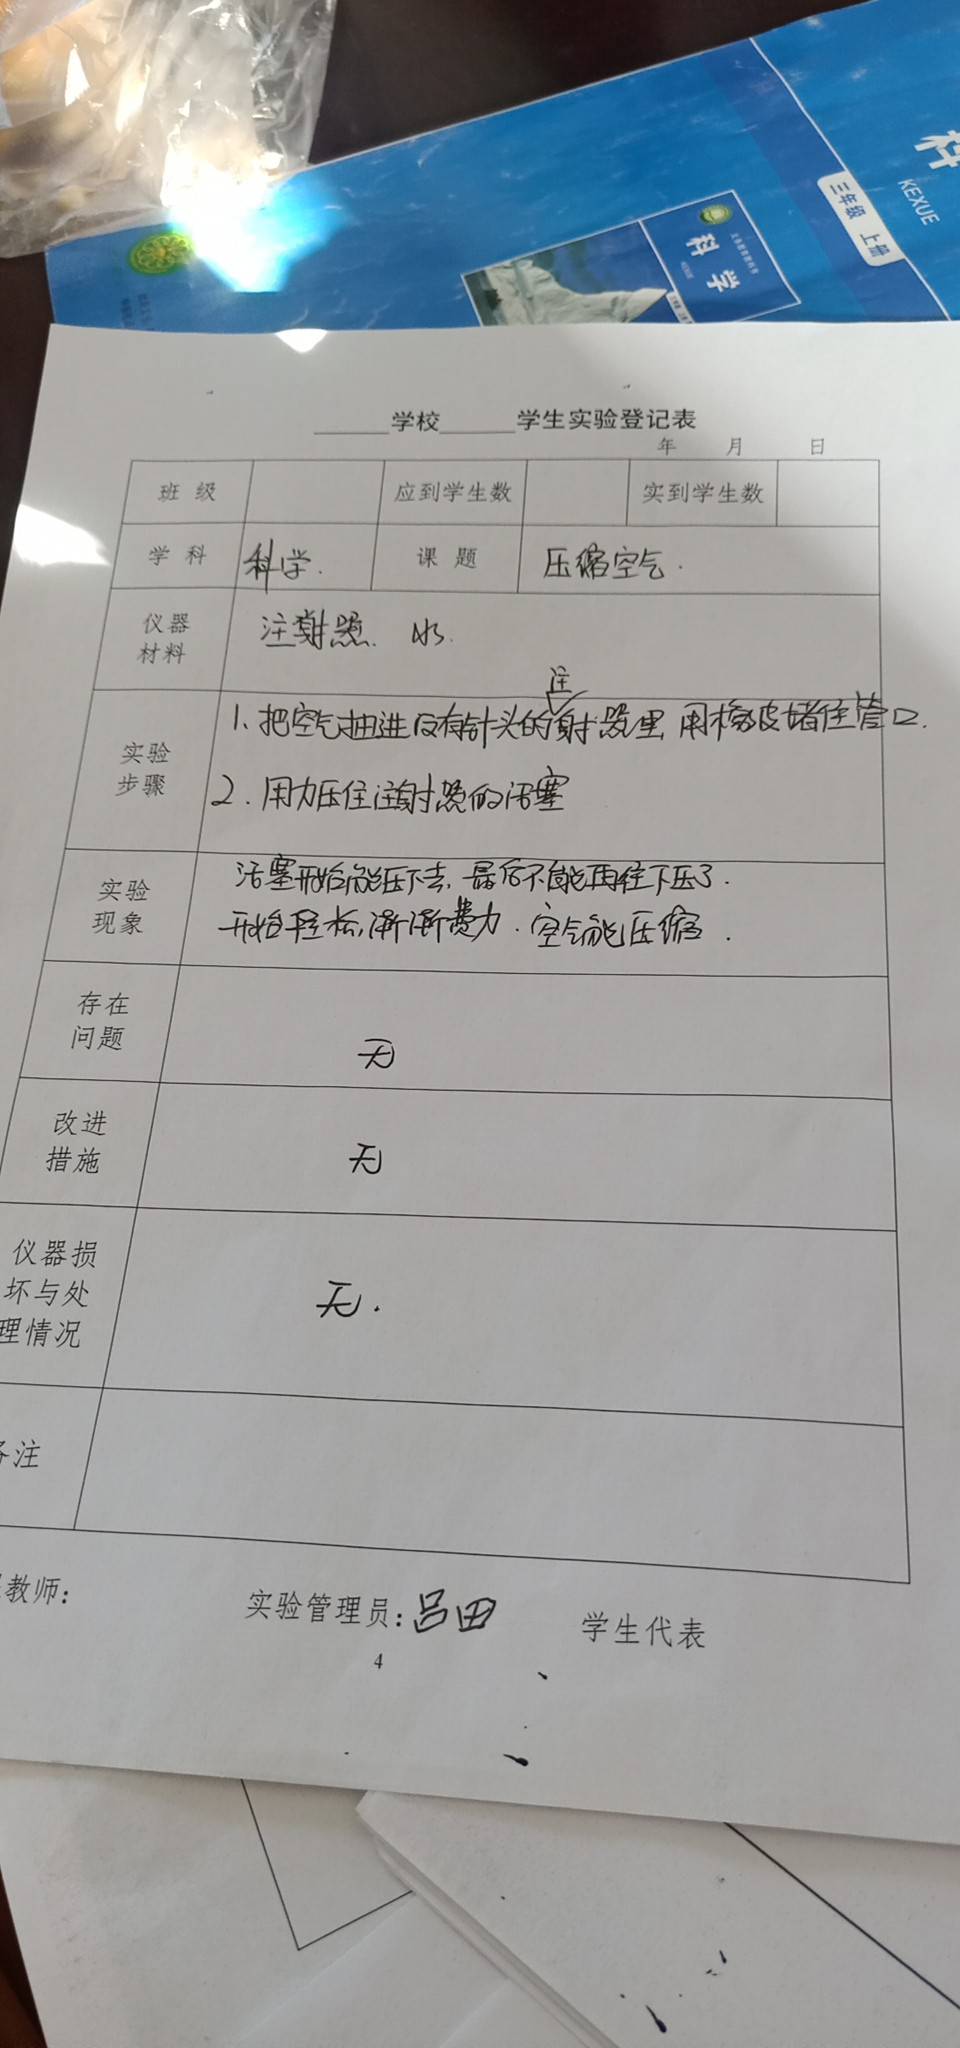 科
KEXUE
三年级 上册
义务教育教科书
科学
______学校______学生实验登记表
年 月 日
班 级 应到学生数 实到学生数
学 科 科学. 课 题 压缩空气.
仪器
材料
注射器、水.
实验
步骤
注
1.把空气抽进没有针头的射器里,用橡皮堵住管口.
2.用力压住注射器的活塞
实验
现象
活塞开始能压下去,最后不能再往下压了.
开始轻松,渐渐费力.空气能压缩.
存在
问题
无
改进
措施
无
仪器损
坏与处
理情况
无.
备注
教师:
实验管理员:吕田
学生代表
4